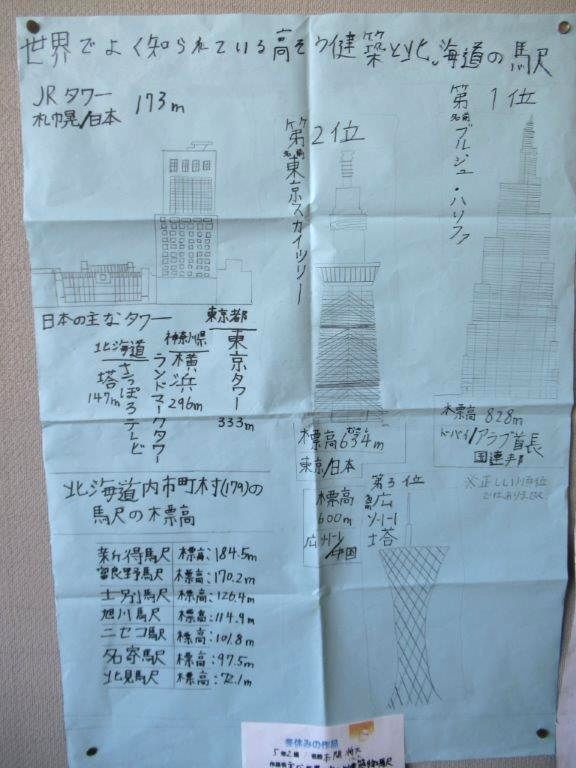 世界でよく知られている高そう健築と北海道の駅
JRタワー 173m
札幌/日本
第1位
名前 ブルジュ・ハリファ
第2位
名前 東京スカイツリー
日本の主なタワー
東京都
東京タワー
333m
神奈川県
横浜ランドマークタワー
296m
北海道
さっぽろテレビ塔
147m
標高 828m
ドーバイ/アラブ首長国連邦
標高634m
東京/日本
※正しい順位ではありません
第3位
広州塔
標高
600m
広州/中国
北海道内市町村(179)の
駅の標高
新得駅 標高:184.5m
富良野駅 標高:170.2m
士別駅 標高:126.4m
旭川駅 標高:114.9m
ニセコ駅 標高:101.8m
名寄駅 標高:97.5m
北見駅 標高:72.1m
冬休みの作品
5年2組